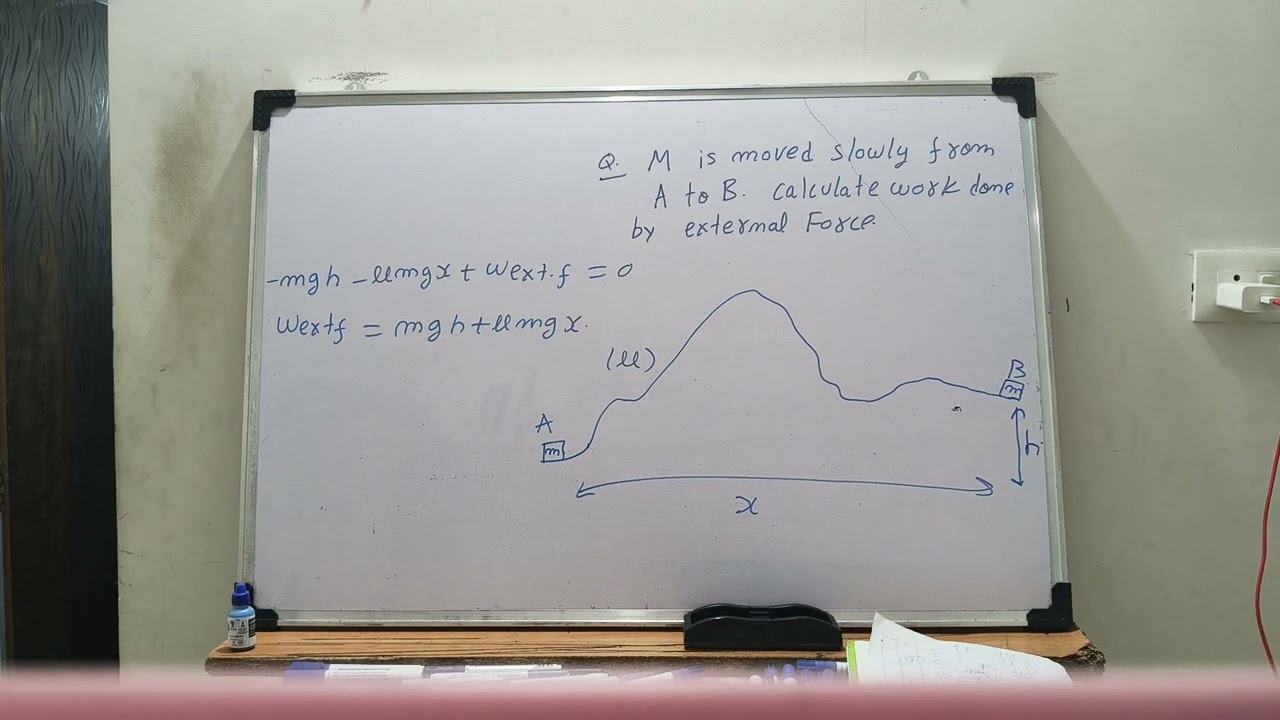 Q. M is moved slowly from
A to B. calculate work done
by external Force.
-mgh - μmgx + Wext.f = 0
Wextf = mgh + μmgx.
(μ)
A
m
B
m
h
x